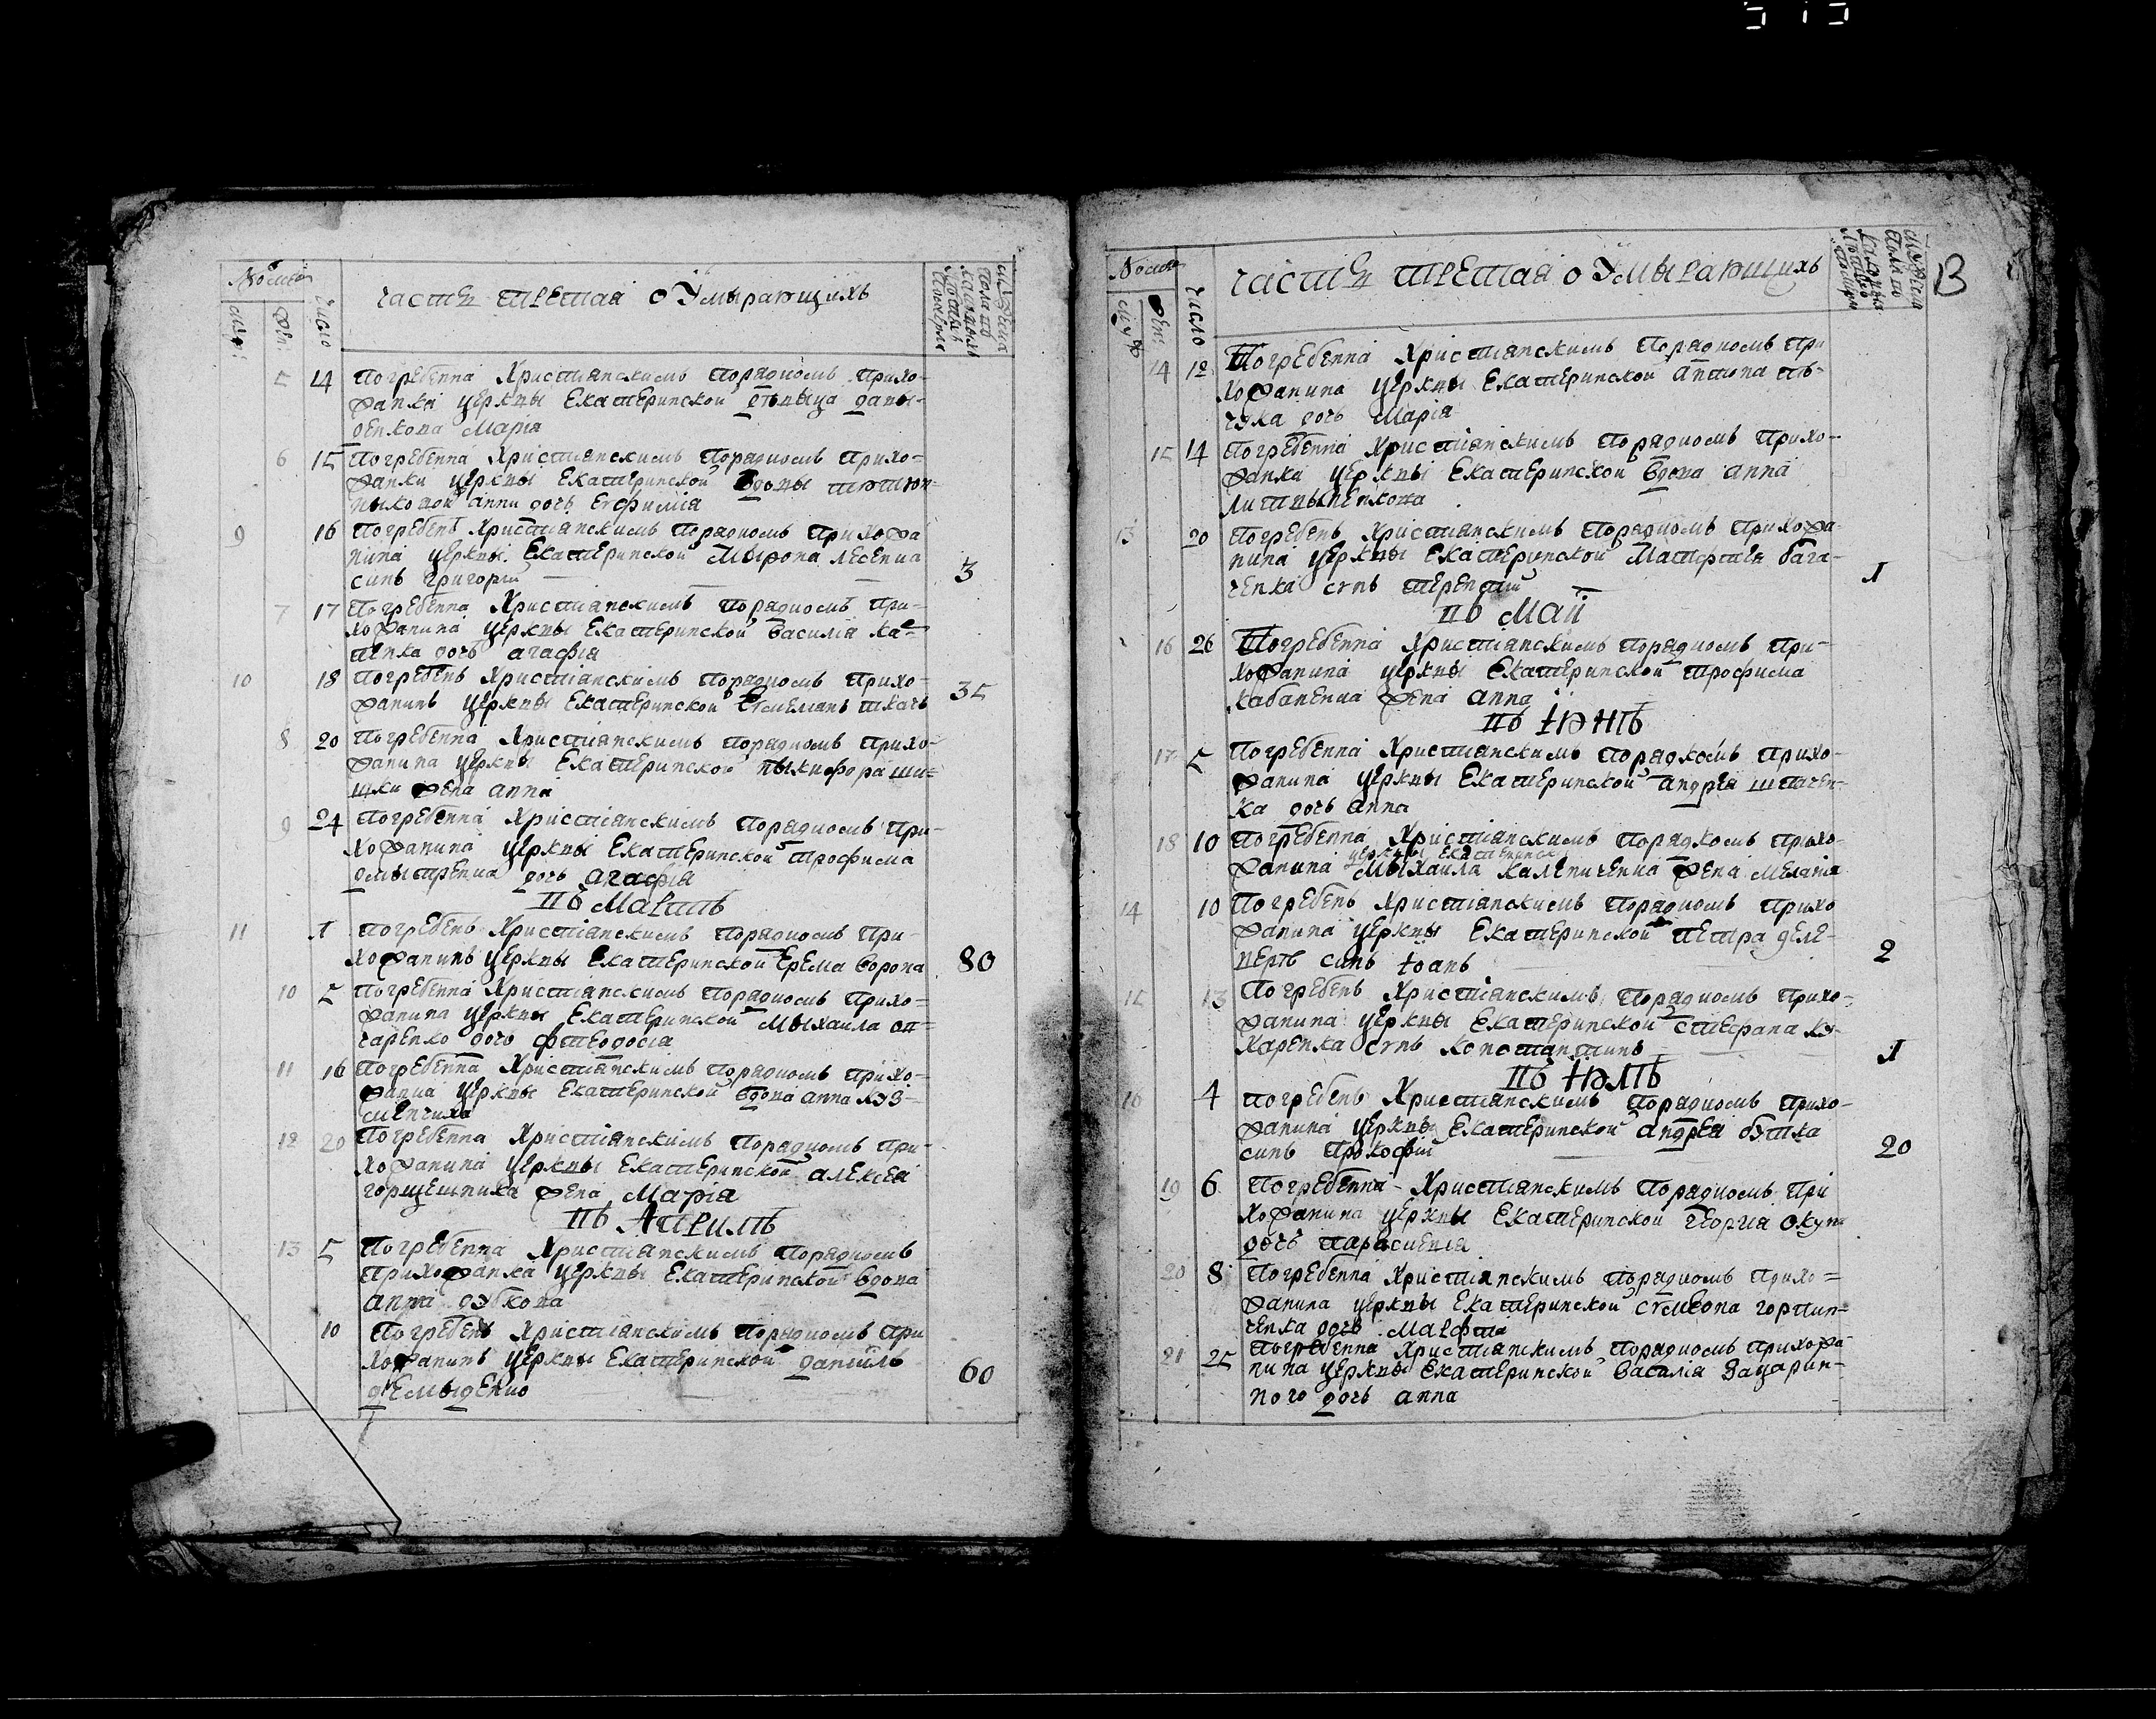 части третая о Умырающихъ
число
5 14 погребенна христианскимъ порядкомъ прихо-
жанка церквы Екатеринской
Мария
6 15 погребенна христианскимъ порядкомъ прихо-
жанки церквы Екатеринской вдовы
анни дочь Евфимия
9 16 погребенъ христианскимъ порядкомъ прихожа
нина церквы Екатеринской Мырона лесенка
синъ григорий 3
7 17 погребенна христианскимъ порядкомъ при-
хожанина церквы Екатеринской василия ка-
дочь агафия
10 18 погребенъ христианскимъ порядкомъ прихо-
жанинъ церквы Екатеринской ткачъ 35
8 20 погребенна христианскимъ порядкомъ прихо-
жанина церквы Екатеринской ныкифора
жена анна
9 24 погребенна христианскимъ порядкомъ при-
хожанина церквы Екатеринской трофима
дмытренка дочь агафия
въ Мартъ
11 1 погребенъ христианскимъ порядкомъ при-
хожанинъ церквы Екатеринской Ерема ворона 80
10 5 погребенна христианскимъ порядкомъ прихо-
жанина церквы Екатеринской Мыхаила
дочь фтеодосия
11 16 погребенна христианскимъ порядкомъ прихо-
жанка церквы Екатеринской вдова анна куз-
менчиха
12 20 погребенна христианскимъ порядкомъ при-
хожанина церквы Екатеринской алексея
горщешника жена Мария
въ Априлъ
13 5 погребенна христианскимъ порядкомъ
прихожанка церквы Екатеринской вдова
анна дубкова
10 погребенъ христианскимъ порядкомъ при
хожанинъ церквы Екатеринской даниилъ 60
демыденко
части третая о Умырающихъ 13
число
14 12 погребенна христианскимъ порядкомъ при
хожанина церквы Екатеринской антона
дочь Мария
15 14 погребенна христианскимъ порядкомъ прихо-
жанка церквы Екатеринской вдова анна
литвыненкова
13 20 погребенъ христианскимъ порядкомъ прихожа-
нина церквы Екатеринской Матфтея бага-
ченка синъ терентий 1
въ Май
16 26 погребенна христианскимъ порядкомъ при-
хожанина церквы Екатеринской трофима
кабаненка жена анна
въ Iюнъ
17 5 погребенна христианскимъ порядкомъ прихо-
жанина церквы Екатеринской андрея шпачен-
ка дочь анна
18 10 погребенна христианскимъ порядкомъ прихо-
церквы Екатеринск
жанина Мыхаила калениченка жена Мелания
14 10 погребенъ христианскимъ порядкомъ прихо
жанина церквы Екатеринской петра деле-
синъ Iоанъ 2
15 13 погребенъ христианскимъ порядкомъ прихо-
жанина церквы Екатеринской стефана ку-
харенка синъ константинъ 1
въ Iюлъ
16 4 погребенъ христианскимъ порядкомъ прихо-
жанина церквы Екатеринской андрея бутка
синъ прокофий 20
19 6 погребенна христианскимъ порядкомъ при
хожанина церквы Екатеринской георгия
дочь параскевия
20 8 погребенна христианскимъ порядкомъ прихо-
жанина церквы Екатеринской симеона
дочь Марфта
21 25 погребенна христианскимъ порядкомъ прихожа-
нина церквы Екатеринской василия Зацарин-
ного дочь анна